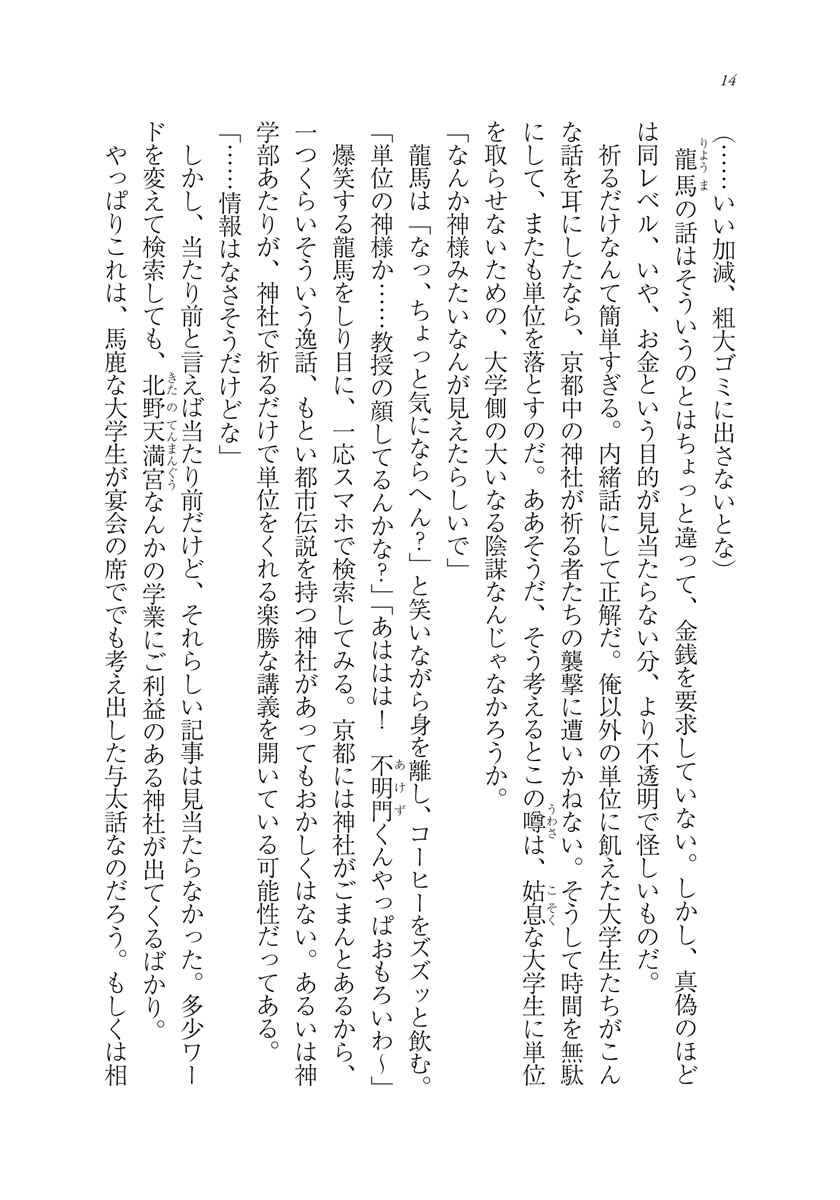 14
（……いい加減、粗大ゴミに出さないとな）
　龍馬の話はそういうのとはちょっと違って、金銭を要求していない。しかし、真偽のほど
は同レベル、いや、お金という目的が見当たらない分、より不透明で怪しいものだ。
　祈るだけなんて簡単すぎる。内緒話にして正解だ。俺以外の単位に飢えた大学生たちがこん
な話を耳にしたなら、京都中の神社が祈る者たちの襲撃に遭いかねない。そうして時間を無駄
にして、またも単位を落とすのだ。ああそうだ、そう考えるとこの噂は、姑息な大学生に単位
を取らせないための、大学側の大いなる陰謀なんじゃなかろうか。
「なんか神様みたいなんが見えたらしいで」
　龍馬は「なっ、ちょっと気にならへん？」と笑いながら身を離し、コーヒーをズズッと飲む。
「単位の神様か……教授の顔してるんかな？」「あははは！　不明門くんやっぱおもろいわ～」
　爆笑する龍馬をしり目に、一応スマホで検索してみる。京都には神社がごまんとあるから、
一つくらいそういう逸話、もとい都市伝説を持つ神社があってもおかしくはない。あるいは神
学部あたりが、神社で祈るだけで単位をくれる楽勝な講義を開いている可能性だってある。
「……情報はなさそうだけどな」
　しかし、当たり前と言えば当たり前だけど、それらしい記事は見当たらなかった。多少ワー
ドを変えて検索しても、北野天満宮なんかの学業にご利益のある神社が出てくるばかり。
　やっぱりこれは、馬鹿な大学生が宴会の席ででも考え出した与太話なのだろう。もしくは相